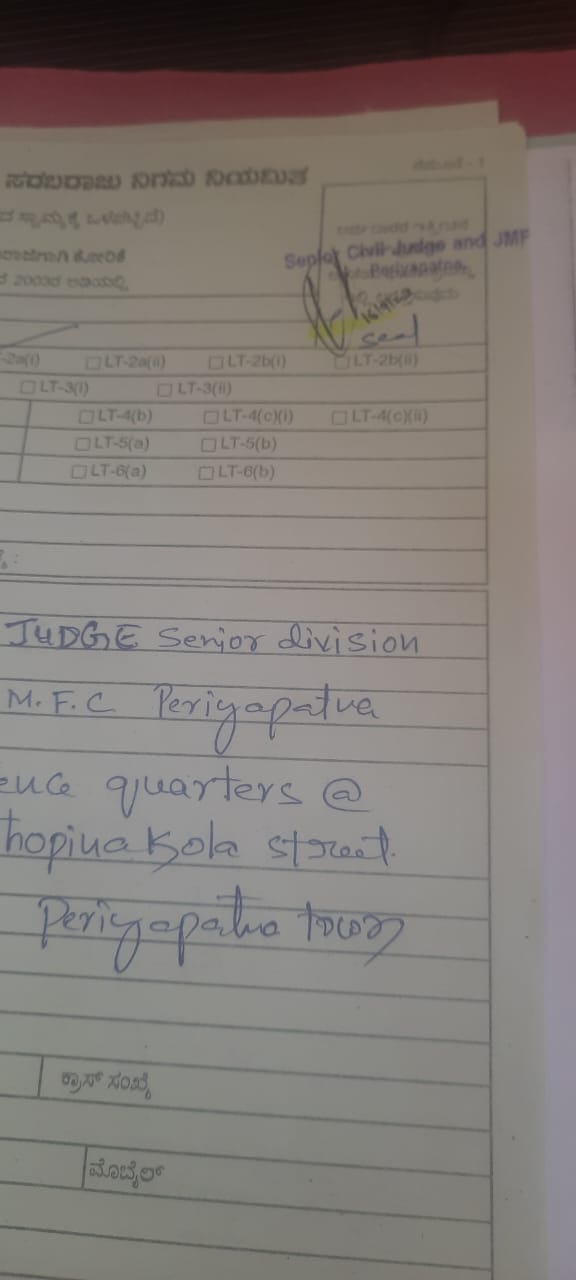 ನಮೂನೆ - 1
ಸರಬರಾಜು ನಿಗಮ ನಿಯಮಿತ
ಸ್ವಾಮ್ಯಕ್ಕೆ ಒಳಪಟ್ಟಿದೆ)
Senior Civil Judge and JMF
Periyapatna
ಕೋರಿಕೆ
2003ರ ಅಡಿಯಲ್ಲಿ
seal
2a(i) LT-2a(ii) LT-2b(i) LT-2b(ii)
LT-3(i) LT-3(ii)
LT-4(b) LT-4(c)(i) LT-4(c)(ii)
LT-5(a) LT-5(b)
LT-6(a) LT-6(b)
JUDGE Senior division
M.F.C Periyapatna
ence quarters @
thopina kola street.
Periyapatna town
ಕ್ರಾಸ್ ಸಂಖ್ಯೆ
ಮೊಬೈಲ್